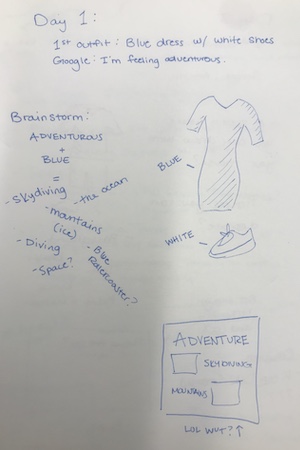 Day 1:
1st outfit: Blue dress w/ white shoes
Google: I'm feeling adventurous.
Brainstorm:
ADVENTUROUS
+
BLUE
=
- Skydiving
- the ocean
- mountains
(ice)
- Diving
- Space?
- Blue
Rollercoaster?
BLUE
WHITE
ADVENTURE
SKYDIVING
MOUNTAINS
LOL WUT? ↑